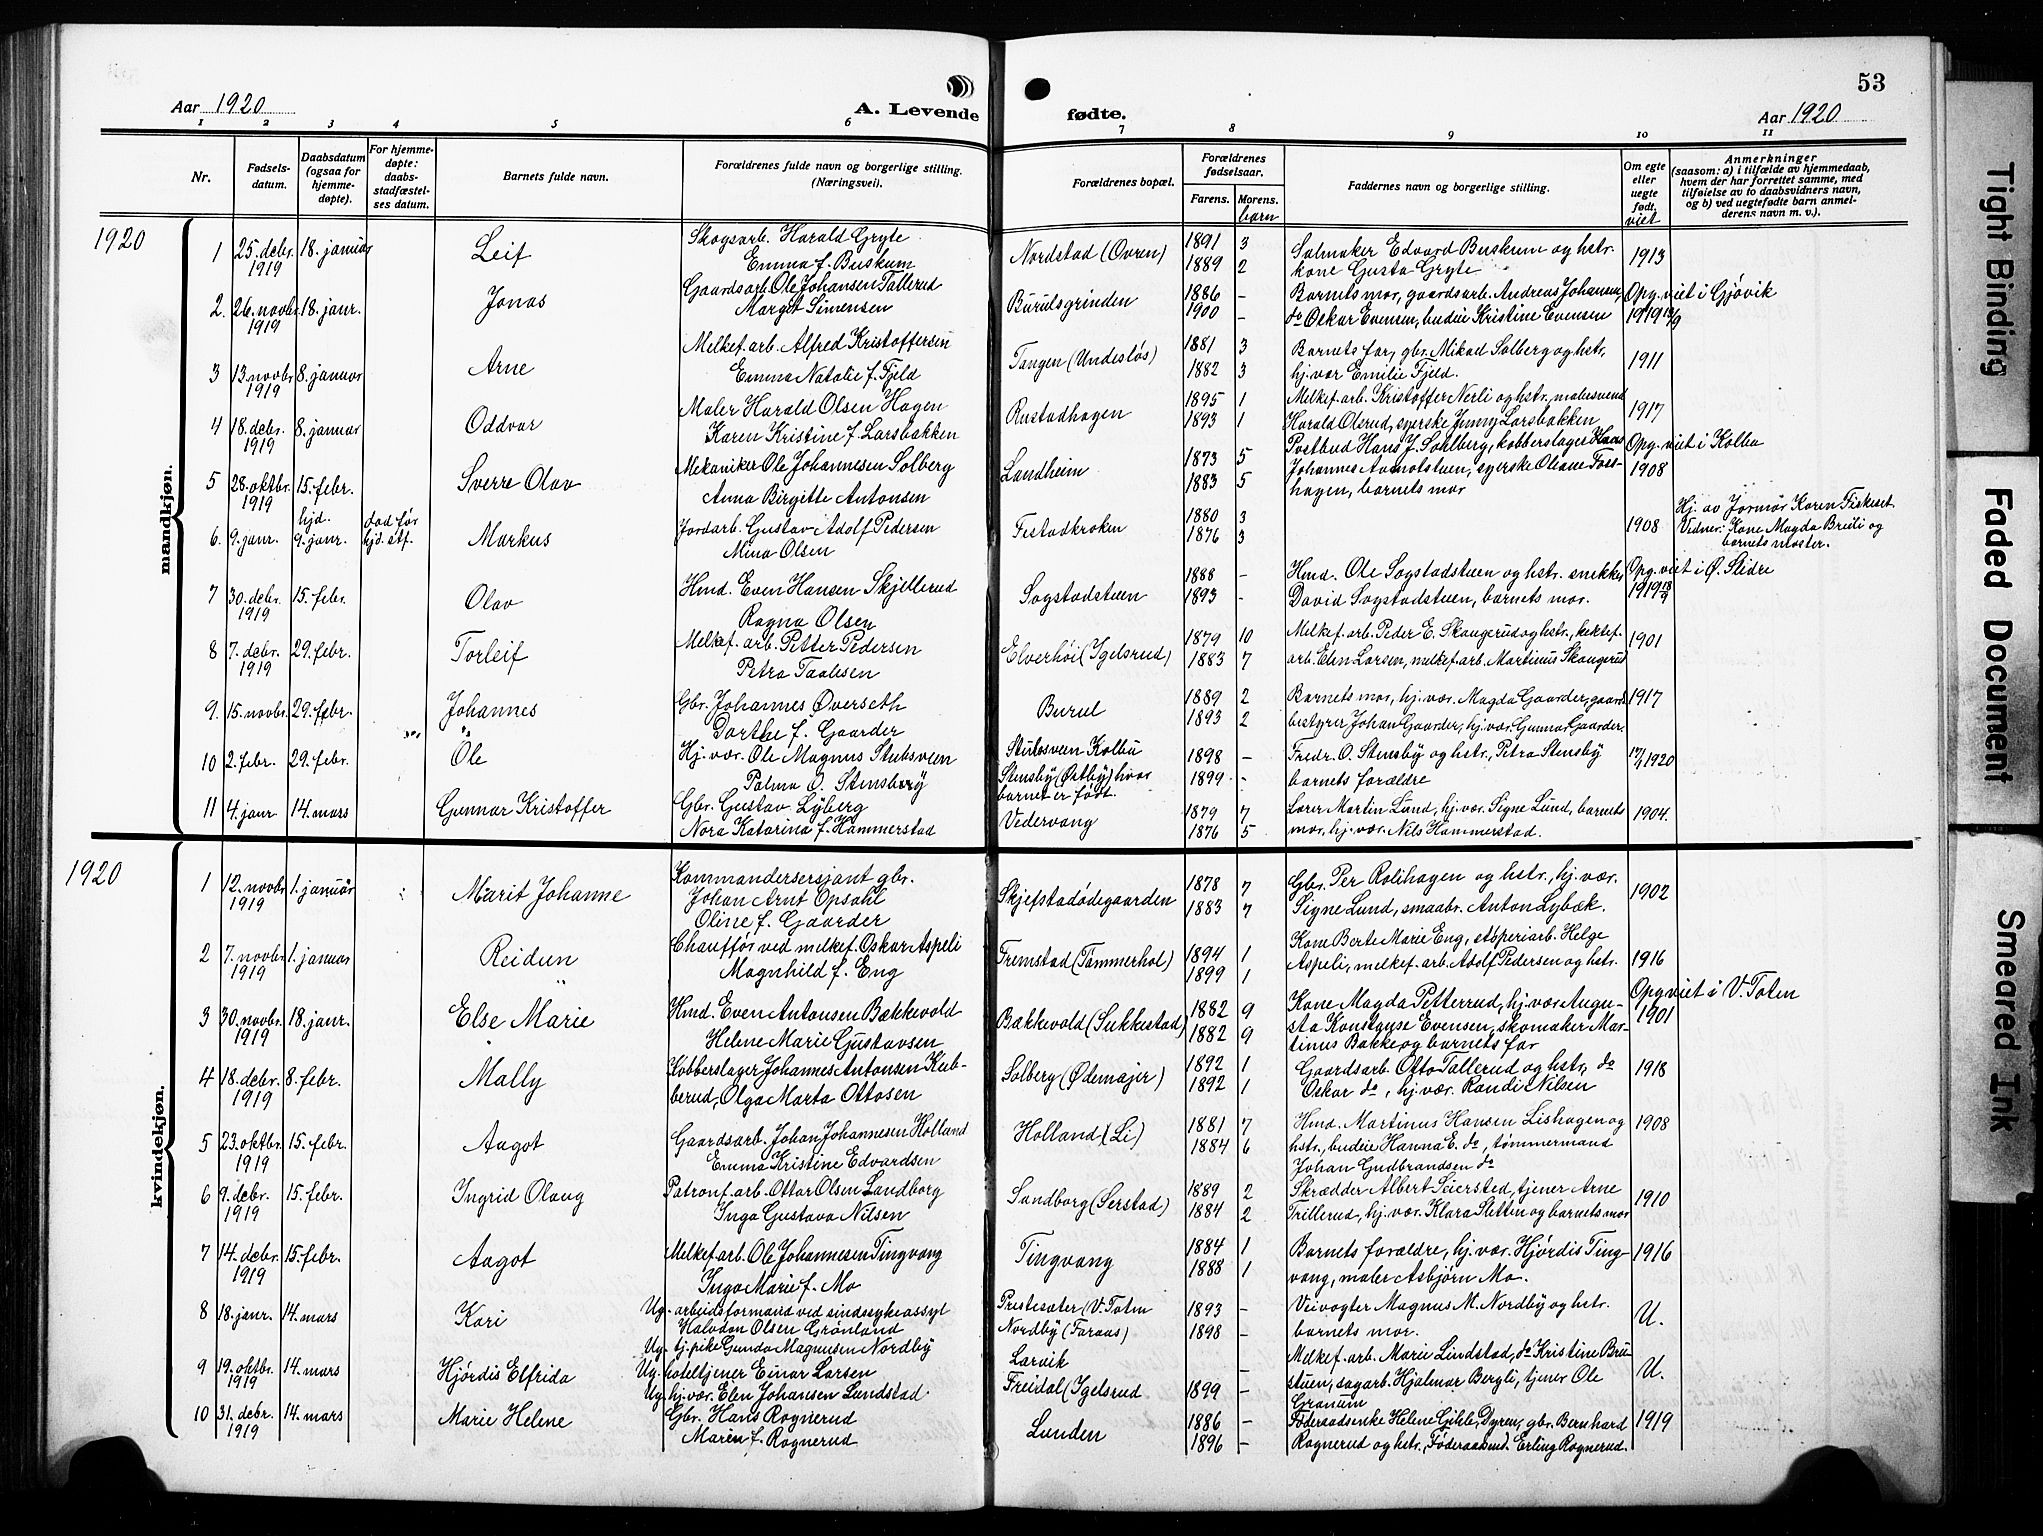 53
Aar 1920
A. Levende fødte.
Aar 1920
1 2 3 4 5 6 7 8 9 10 11
Nr.
Fødsels-
datum.
Daabsdatum
(ogsaa for
hjemme-
døpte).
For hjemme-
døpte:
daabs-
stadfæstel-
ses datum.
Barnets fulde navn.
Forældrenes fulde navn og borgerlige stilling.
(Næringsvei).
Forældrenes bopæl.
Forældrenes
fødselsaar.
Farens. Morens.
barn
Faddernes navn og borgerlige stilling.
Om egte
eller
uegte
født.
viet
Anmerkninger
(saasom: a) i tilfælde av hjemmedaab,
hvem der har forrettet samme, med
tilføielse av to daabsvidners navn,
og b) ved uegtefødte barn anmel-
derens navn m. v.).
1920
mandkjøn.
1 25. debr. 1919 18. januar Leif
Skogsarb. Harald Gryte
Emma f. Buskum
Nordstad (Øvren)
1891 3
1889 2
Salmaker Edvard Buskum og hstr.
kone Gusta Gryte
1913
2. 26. novbr. 1919 18. janr. Jonas
Gaardsarb. Ole Johansen Tallerud
Margit Simensen
Burulsgrinden
1886 -
1900 -
Barnets mor, gaardsarb. Andreas Johansen,
do Oskar Evensen, budeie Kristine Evensen
Opg. viet i Gjøvik
1919
3 13. novbr 1919 8. januar Arne
Melkef. arb. Alfred Kristoffersen
Emma Natalie f. Fjeld
Tangen (Undesløs)
1881 3
1882 3
Barnets far, gbr. Mikal Solberg og hstr,
hj. vær Emilie Fjeld.
1911
4 18. debr. 1919 8. januar Oddvar
Maler Harald Olsen Hagen
Karen Kristine f. Larsbakken
Rustadhagen
1895 1
1893 1
Melkef. arb. Kristoffer Nerli og hstr, malersvend
Harald Olsrud, syerske Jenny Larsbakken
1917
5 28. oktbr. 1919 15. febr. Sverre Olav
Mekaniker Ole Johannesen Solberg
Anna Birgitte Antonsen
Landheim
1873 5
1883 5
Postbud Hans J. Sohlberg, kobberslager Hans
Johannes Aamotstuen, syerske Oleane Foss-
hagen, barnets mor
Opg. viet i Kolbu
1908
6. 9. janr. hjd. 9. janr. død før hjd. stf. Markus
Jordarb. Gustav Adolf Pedersen
Mina Olsen
Festadkroken
1880 3
1876 3
1908
Hj. av Jormor Karen Fiskeset
Vidner: Kone Magda Breili og
barnets moster.
7 30. debr. 1919 15. febr. Olav
Hmd. Even Hansen Skjellerud
Ragna Olsen
Sogstadstuen
1888 -
1893 -
Hmd. Ole Sogstadstuen og hstr. snekker
David Sogstadstuen, barnets mor.
Opg. viet i Ø. Slidre
1919
8 7. debr. 1919 29. febr. Torleif
Melkef. arb. Petter Pedersen
Petra Paalesen
Elverhøi (Igelsrud)
1879 10
1883 7
Melkef. arb. Peder E. Skaugerud og hstr.,
arb. Elen Larsen, melkef. arb. Martinus Skaugerud
1901
9. 15. novbr. 1919 29. febr. Johannes
Gbr. Johannes Øverseth
Dorthe f. Gaarder
Burul
1889 2
1893 2
Barnets mor, hj. vær. Magda Gaarder, gaard
bestyrer Johan Gaarder, hj. vær. Gunnar Gaarder.
1917
10 2. febr. 29. febr. Ole
Hj. vær. Ole Magnus Stubsveen
Palma O. Stensby
Stubsveen Kolbu
Stensby (Østby) hvor
barnet er født.
1898 -
1899 -
Fredr. O. Stensby og hstr., Petra Stensby
barnets forældre
1920
11 4. janr 14. mars Gunnar Kristoffer
Gbr. Gustav Lyberg
Nora Katarina f. Hammerstad
Vedervang
1879 7
1876 5
Lærer Martin Lund, hj. vær. Signe Lund, barnets
mor, hj. vær. Nils Hammerstad.
1904.
1920
kvindekjøn.
1 12. novbr 1919 1. januar Marit Johanne
Kommandersersjant gbr.
Johan Arnt Opsahl
Oline f. Gaarder
Skjefstadødegaarden
1878 7
1883 7
Gbr. Per Rolihagen og hstr., hj. vær.
Signe Lund, smaabr. Anton Lybæk.
1902
2 7. novbr 1919 1. januar Reidun
Chauffør ved melkef. Oskar Aspeli
Magnhild f. Eng
Fremstad (Tømmerhol)
1894 1
1899 1
Kone Berte Marie Eng, støperiarb. Helge
Aspeli, melkef. arb. Adolf Pedersen og hstr.
1916
3 30. novbr. 1919 18. janr. Else Marie
Hmd. Even Antonsen Bækkevold
Helene Marie Gustavsen
Bækkevold (Sukkestad)
1882 9
1882 9
Kone Magda Petterrud, hj. vær Augu-
sta Konstanse Evensen, skomaker Mar-
tinus Bakke og barnets far
Opg viet i V. Toten
1901
4 18. debr. 1919 8. febr. Mally
Kobberslager Johannes Antonsen Kub-
berud, Olga Marta Ottosen
Solberg (Ødemajer)
1892 1
1892 1
Gaardsarb. Otto Tallerud og hstr, do
Oskar do, hj. vær. Randi Nilsen
1918
5 23. oktbr. 1919 15. febr. Aagot
Gaardsarb. Johan Johannesen Holland
Emma Kristine Edvardsen
Holland (Li)
1881 7
1884 6
Hmd. Martinus Hansen Lishagen og
hstr., budeie Hanna E. do, tømmermand
Johan Gudbrandsen do
1908
6 9. debr. 1919 15. febr. Ingrid Olaug
Patronf. arb. Ottar Olsen Sandborg
Inga Gustava Nilsen
Sandborg (Serstad)
1889 2
1884 2
Skrædder Albert Seiersted, tjener Arne
Trillerud, hj. vær. Klara Sletten og barnets mor
1910
7 14. debr. 1919 15. febr. Aagot
Melkef. arb. Ole Johannesen Tingvang
Inga Marie f. Mo
Tingvang
1884 1
1888 1
Barnets forældre, hj. vær. Hjørdis Ting-
vang, maler Asbjørn Mo.
1916
8 18. janr. 14. mars Kari
Ug. arbeidsformand ved sindssykeassyl
Halvdan Olsen Grønland
Ug. tj. pike Gunda Magnusen Nordby
Prestesæter (V. Toten
Nordby (Faraas)
1893 -
1898 -
Veivogter Magnus M. Nordby og hstr.
barnets mor.
U.
9 19. oktbr. 1919 14. mars Hjørdis Elfrida
Ug. hoteltjener Einar Larsen
Ug. hj. vær. Elen Johansen Lundstad
Larvik
Freidal (Igelsrud
-
1899 -
Melkef. arb. Marie Lindstad, do Kristine Bru-
stuen, sagarb. Hjalmar Bergli, tjener Ole
Granum
U.
10 31. debr. 1919 14. mars Marie Helene
Gbr. Hans Rognerud
Maren f. Rognerud
Lunden
1886 -
1896 -
Føderaadsenke Helene Gihle, Dyren, gbr. Bernhard
Rognerud og hstr., Føderaadsmd. Erling Rognerud.
1919
Tight Binding
Faded Document
Smeared Ink